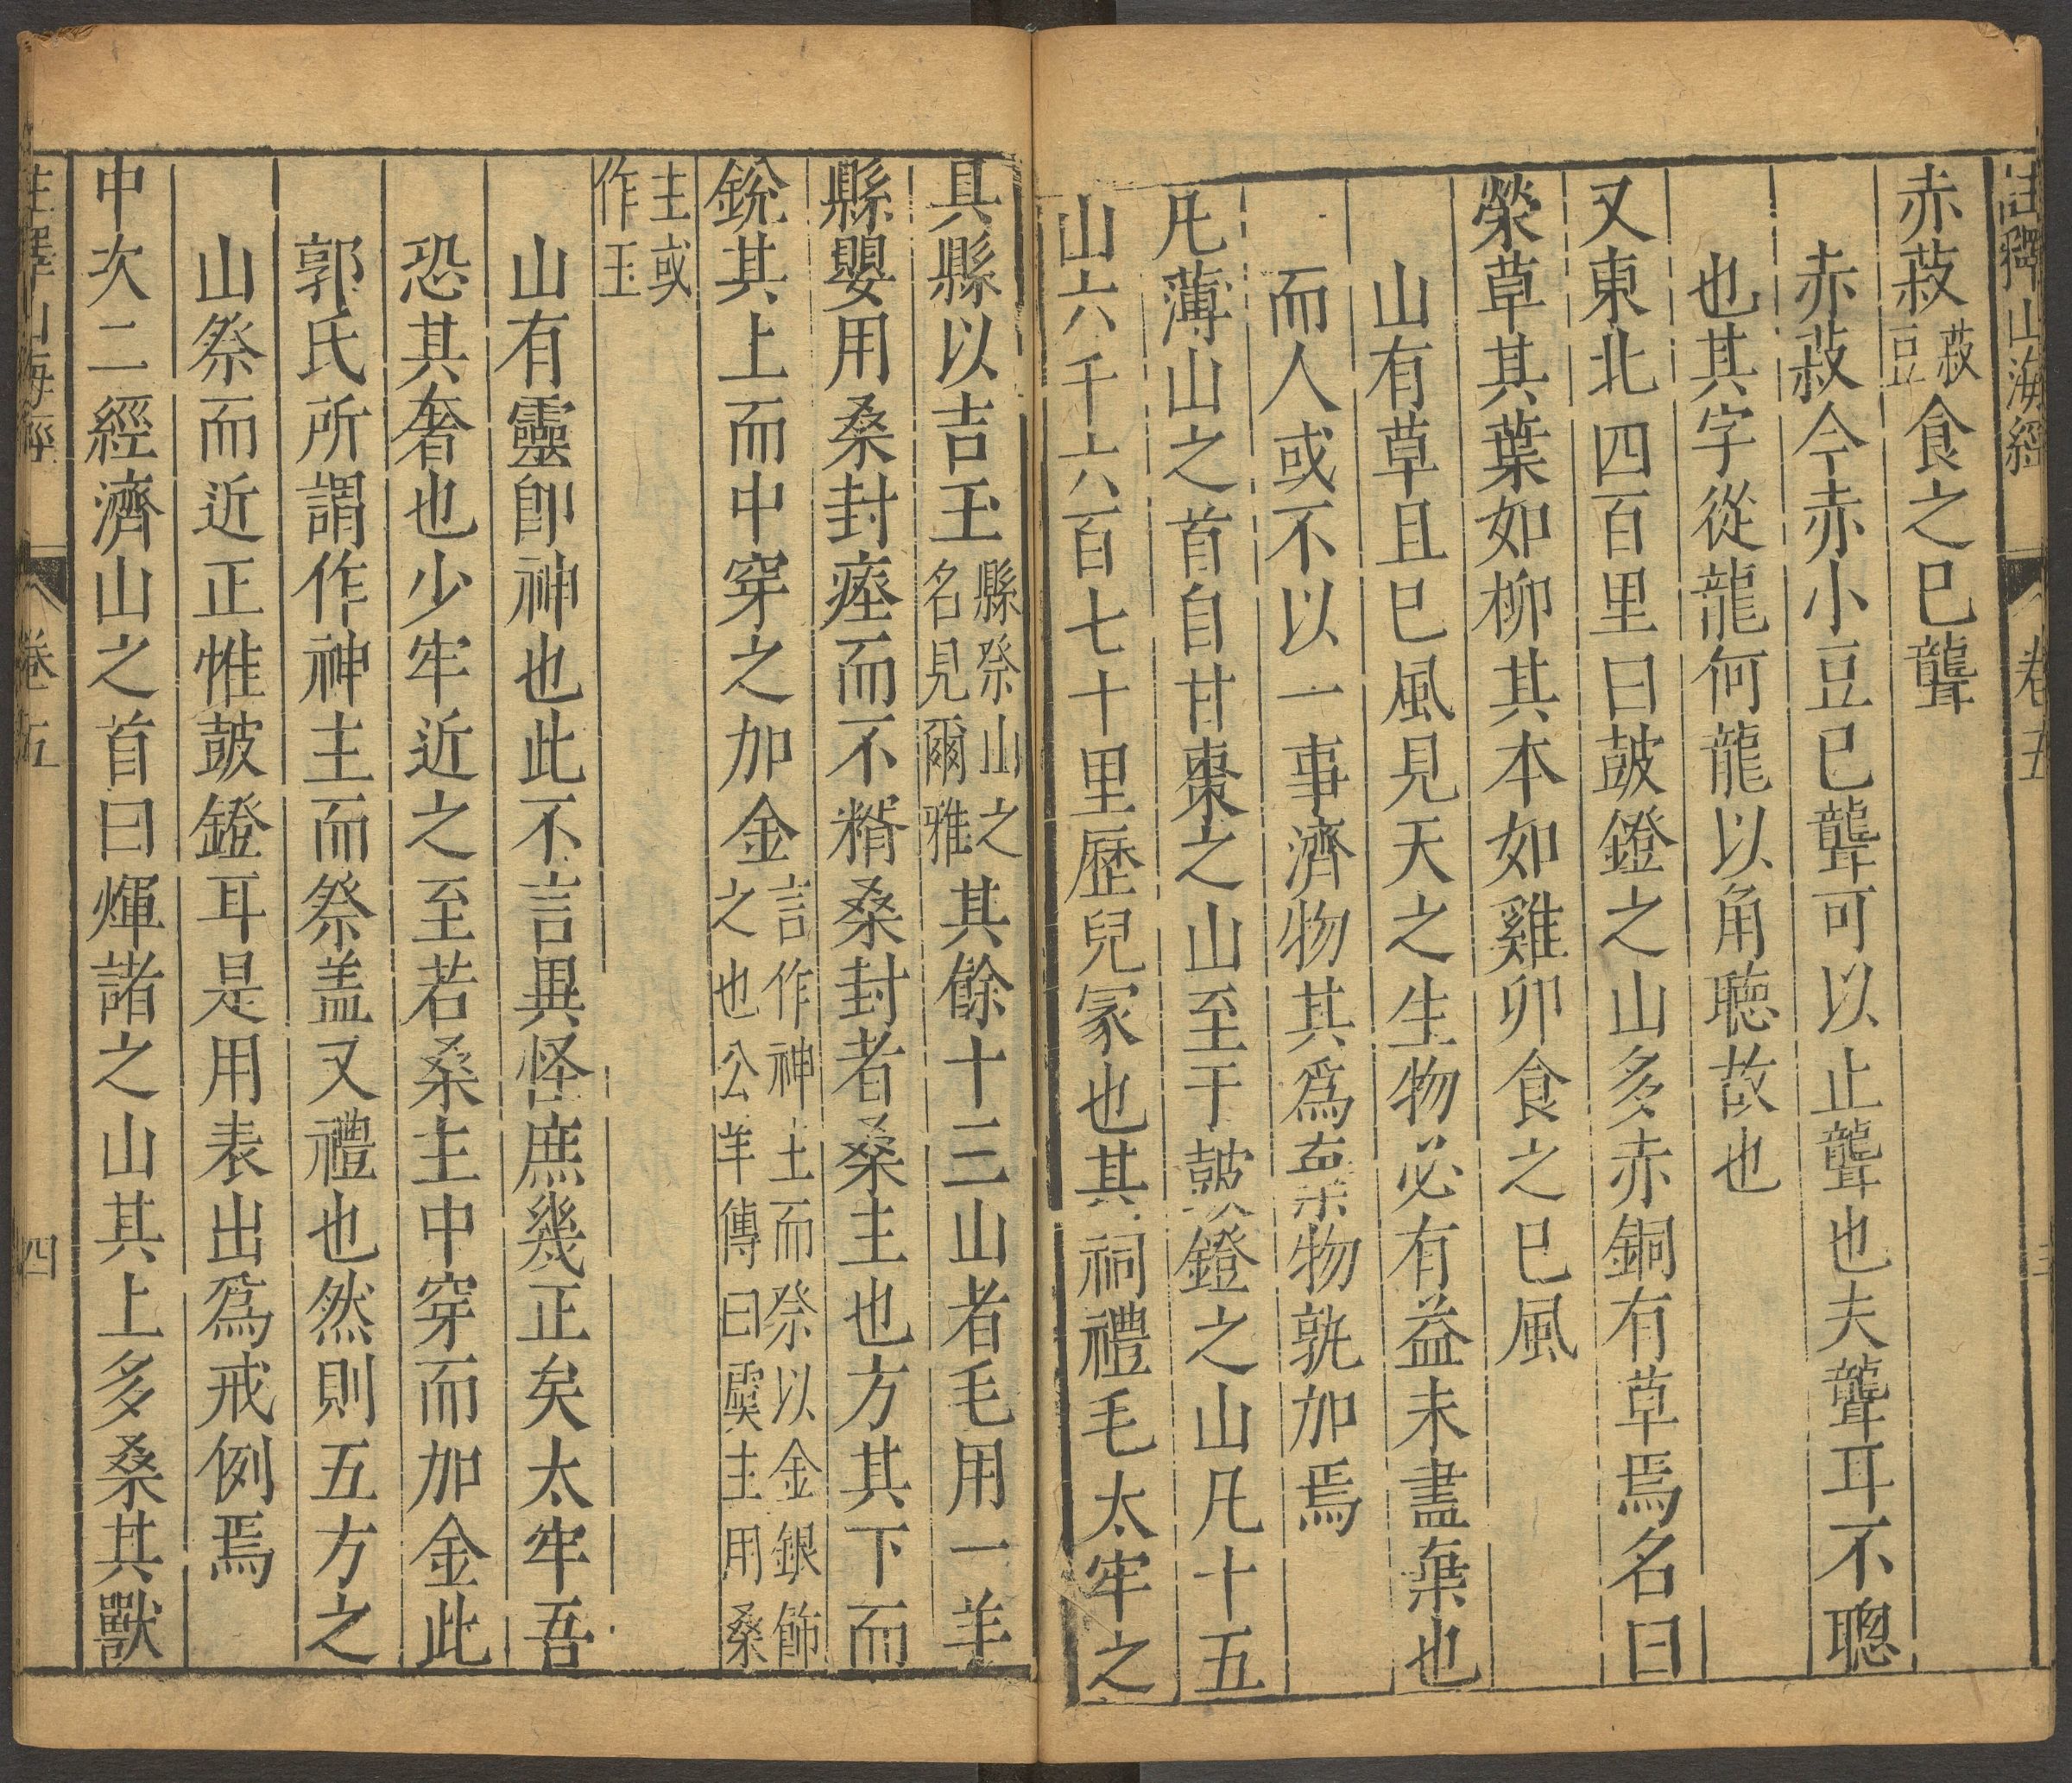 註釋山海經 卷五 三
赤菽菽豆食之已聾
赤菽今赤小豆已聾可以止聾也夫聾耳不聰
也其字從龍何龍以角聽故也
又東北四百里曰鼓鐙之山多赤銅有草焉名曰
榮草其葉如柳其本如雞卵食之已風
山有草且已風見天之生物必有益未盡棄也
而人或不以一事濟物其為棄物孰加焉
凡薄山之首自甘棗之山至于鼓鐙之山凡十五
山六千六百七十里歷兒冢也其祠禮毛太牢之
具縣以吉玉縣祭山之名見爾雅其餘十三山者毛用一羊
縣嬰用桑封瘞而不糈桑封者桑主也方其下而
銳其上而中穿之加金言作神主而祭以金銀飾之也公羊傳曰虞主用桑
主或作玉
山有靈卽神也此不言異怪庶幾正矣太牢吾
恐其奢也少牢近之至若桑主中穿而加金此
郭氏所謂作神主而祭盖又禮也然則五方之
山祭而近正惟鼓鐙耳是用表出爲戒例焉
中次二經濟山之首曰煇諸之山其上多桑其獸
註釋山海經 卷五 四